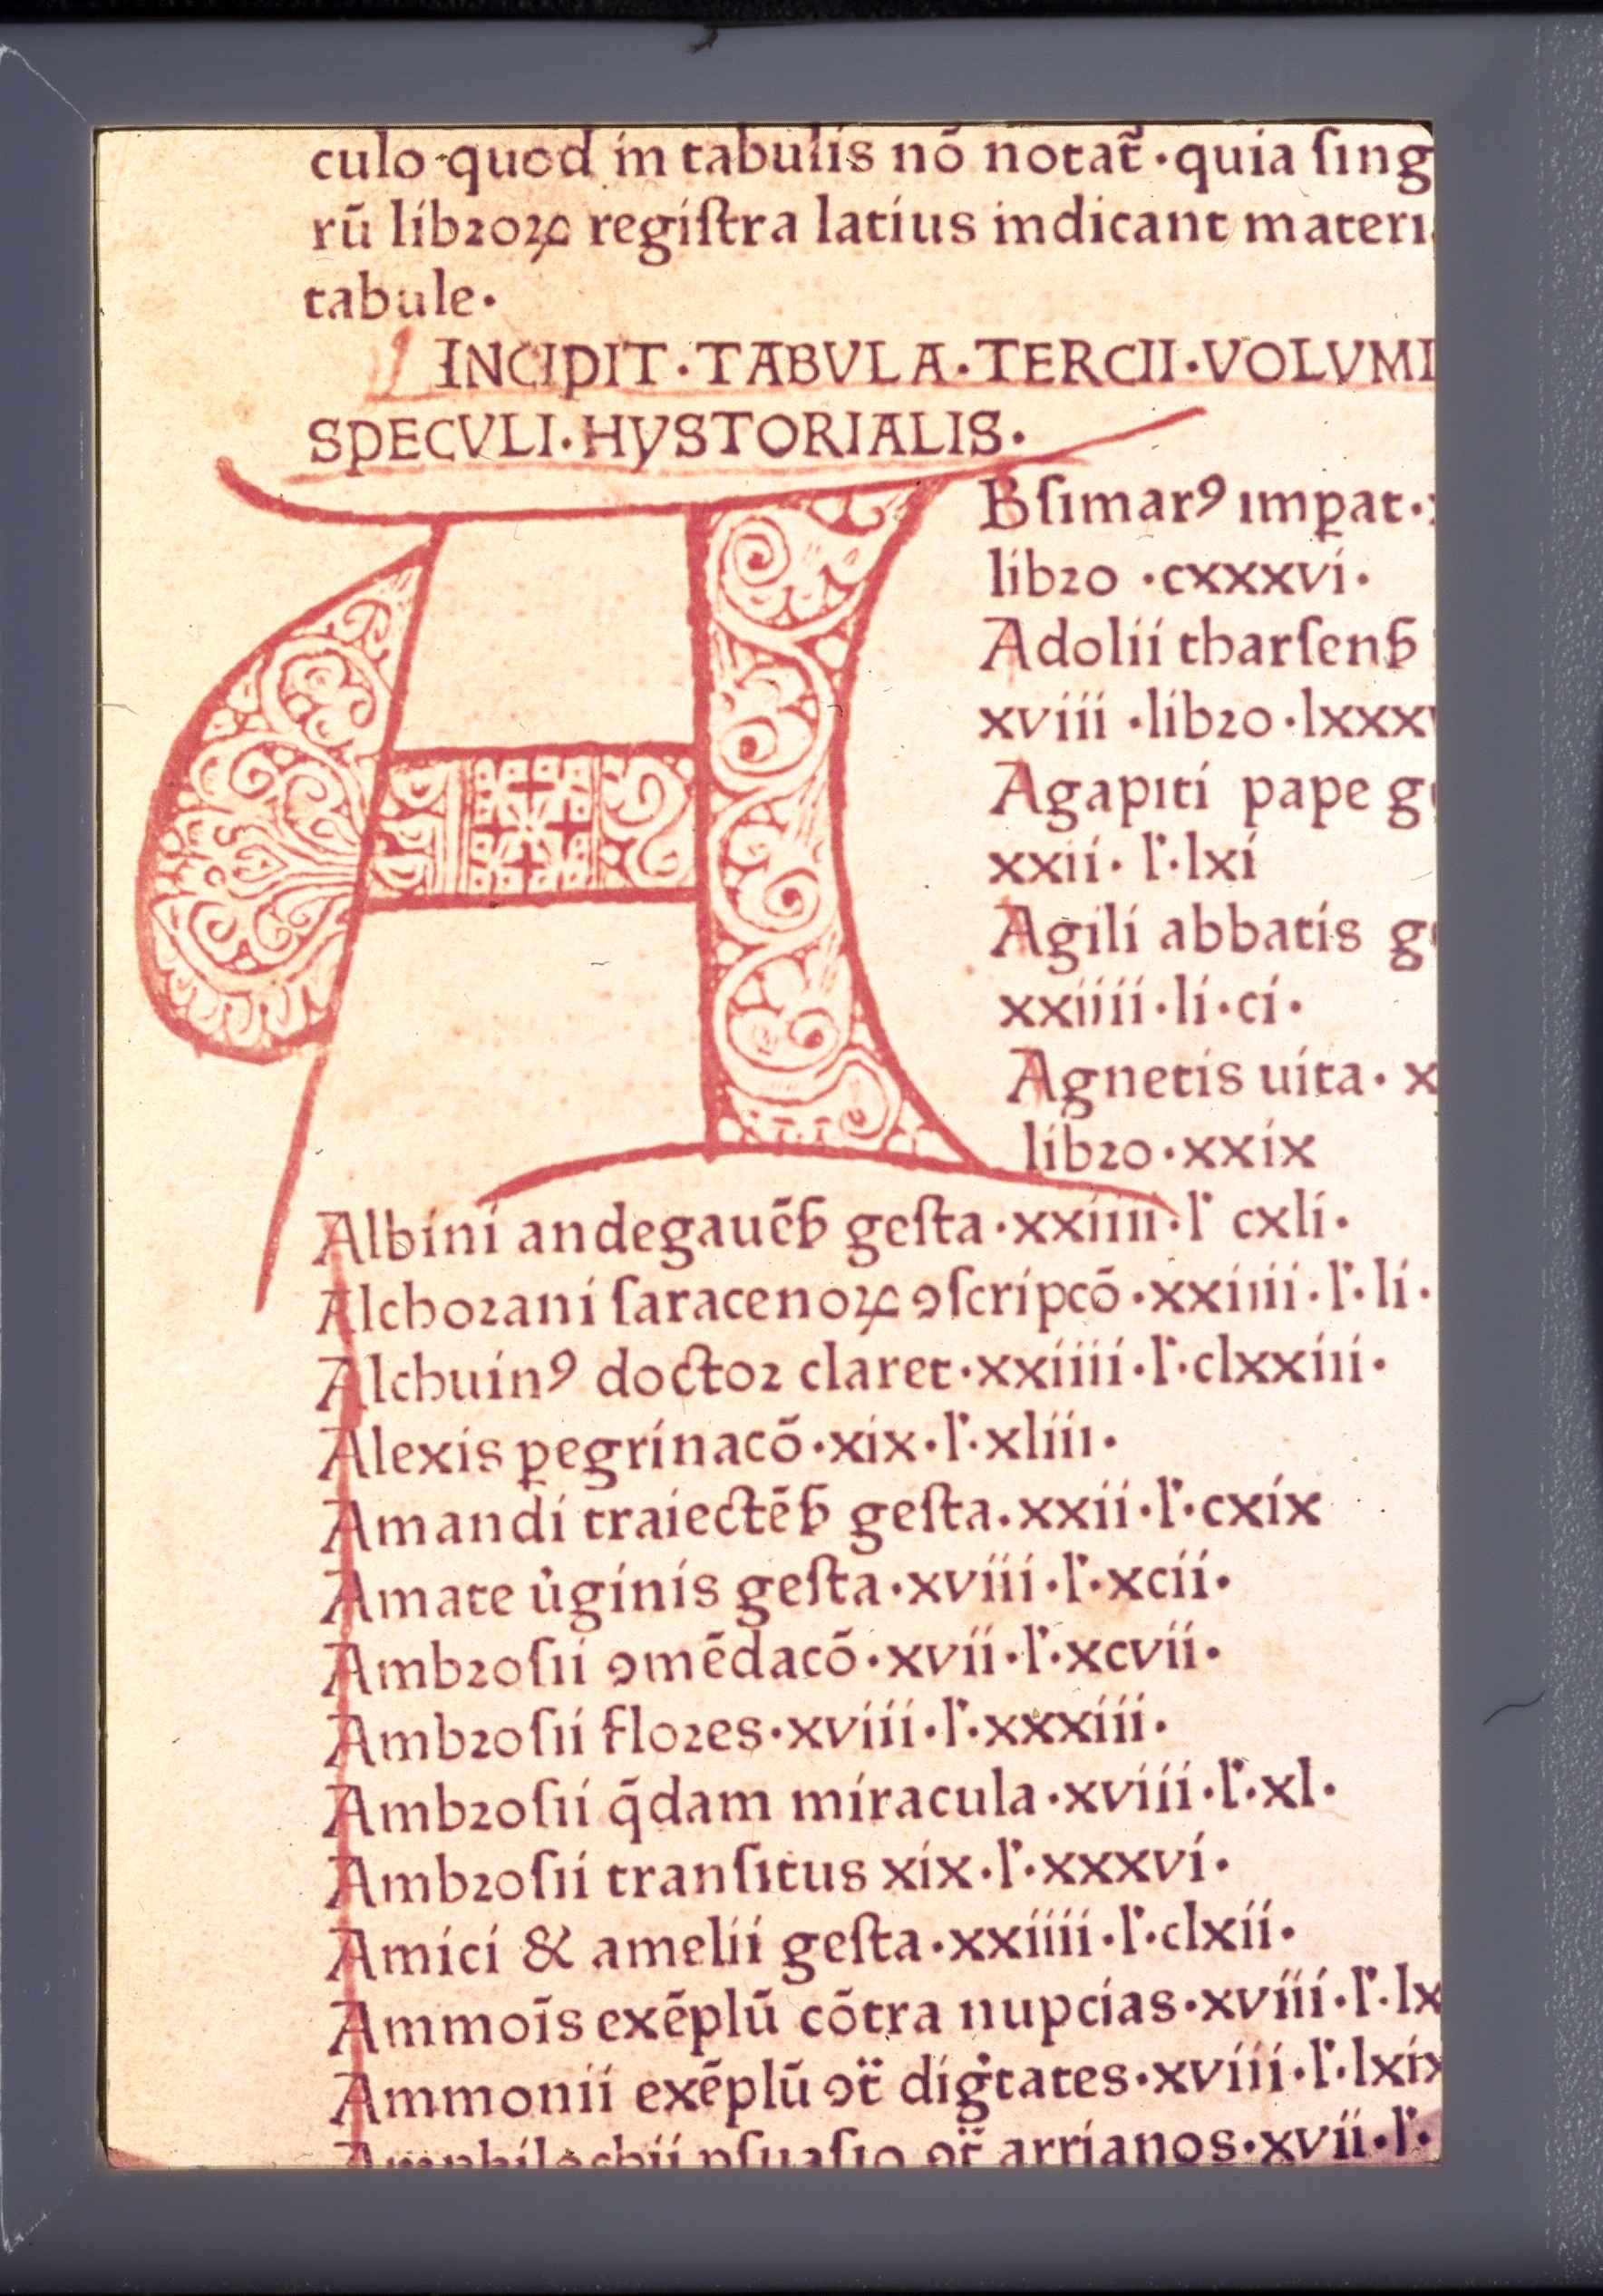 culo quod in tabulis nō notat᷑·quia ſing
rū libꝛoꝝ regiſtra latius indicant materi
tabule·
INCIPIT·TABVLA·TERCII·VOLVMI
SPECVLI·HYSTORIALIS·
A
Bſimarꝰ imꝑat·
libꝛo ·cxxxvi·
Adolii tharſenẜ
xviii ·libꝛo·lxxx
Agapiti pape
xxii· l'·lxi
Agili abbatis
xxiiiii·li·ci·
Agnetis uita· x
libꝛo·xxix
Albini andegauēẜ geſta·xxiiii·l' cxli·
Alchoꝛani ſaracenoꝝ ꝯſcripcō·xxiiii·l'·li·
Alchuinꝰ doctoꝛ claret·xxiiii·l'·clxxiii·
Alexis ꝑegrinacō·xix·l'·xliii·
Amandi traiectēẜ geſta·xxii·l'·cxix
Amate u̇ginis geſta·xviii·l'·xcii·
Ambꝛoſii ꝯmēdacō·xvii·l'·xcvii·
Ambꝛoſii floꝛes·xviii·l'·xxxiii·
Ambꝛoſii q̄dam miracula·xviii·l'·xl·
Ambꝛoſii tranſitus xix·l'·xxxvi·
Amici & amelii geſta·xxiiii·l'·clxii·
Ammoīs exēplū cōtra nupcias·xviii·l'·lx
Ammonii exēplū ꝯtᷓ digͥtates·xviii·l'·lxix
Amphilochii ꝑſuaſio ꝯtᷓ arrianos·xvii·l'·